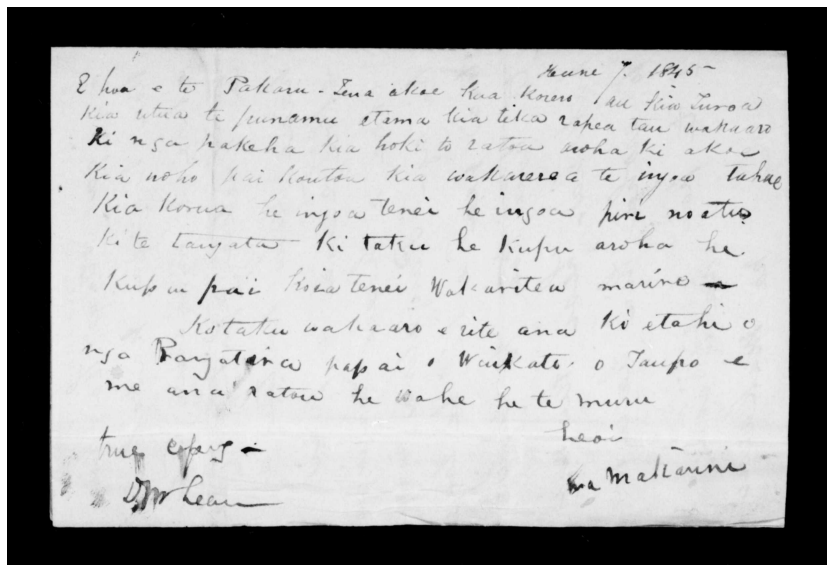 Hune 7. 1845
E hoa e te Pakaru - Tena akoe kua korero au kia Turoa
kia utua te punamu etama kia tika rapea tau wakaaro
ki nga pakeha kia hoki to ratou aroha ki akoe
kia noho pai koutou kia wakarerea te ingoa tahae
kia korua he ingoa tenei he ingoa piri noatu
ki te tangata ki taku he kupu aroha he
kupu pai koia tenei wakaritea marire
Ko taku wakaaro e rite ana ki etahi o
nga Rangatira papai o Waikato o Taupo e
mea ana ratou he wahe he te muru
heoi
na Makarini
true copy -
D McLean